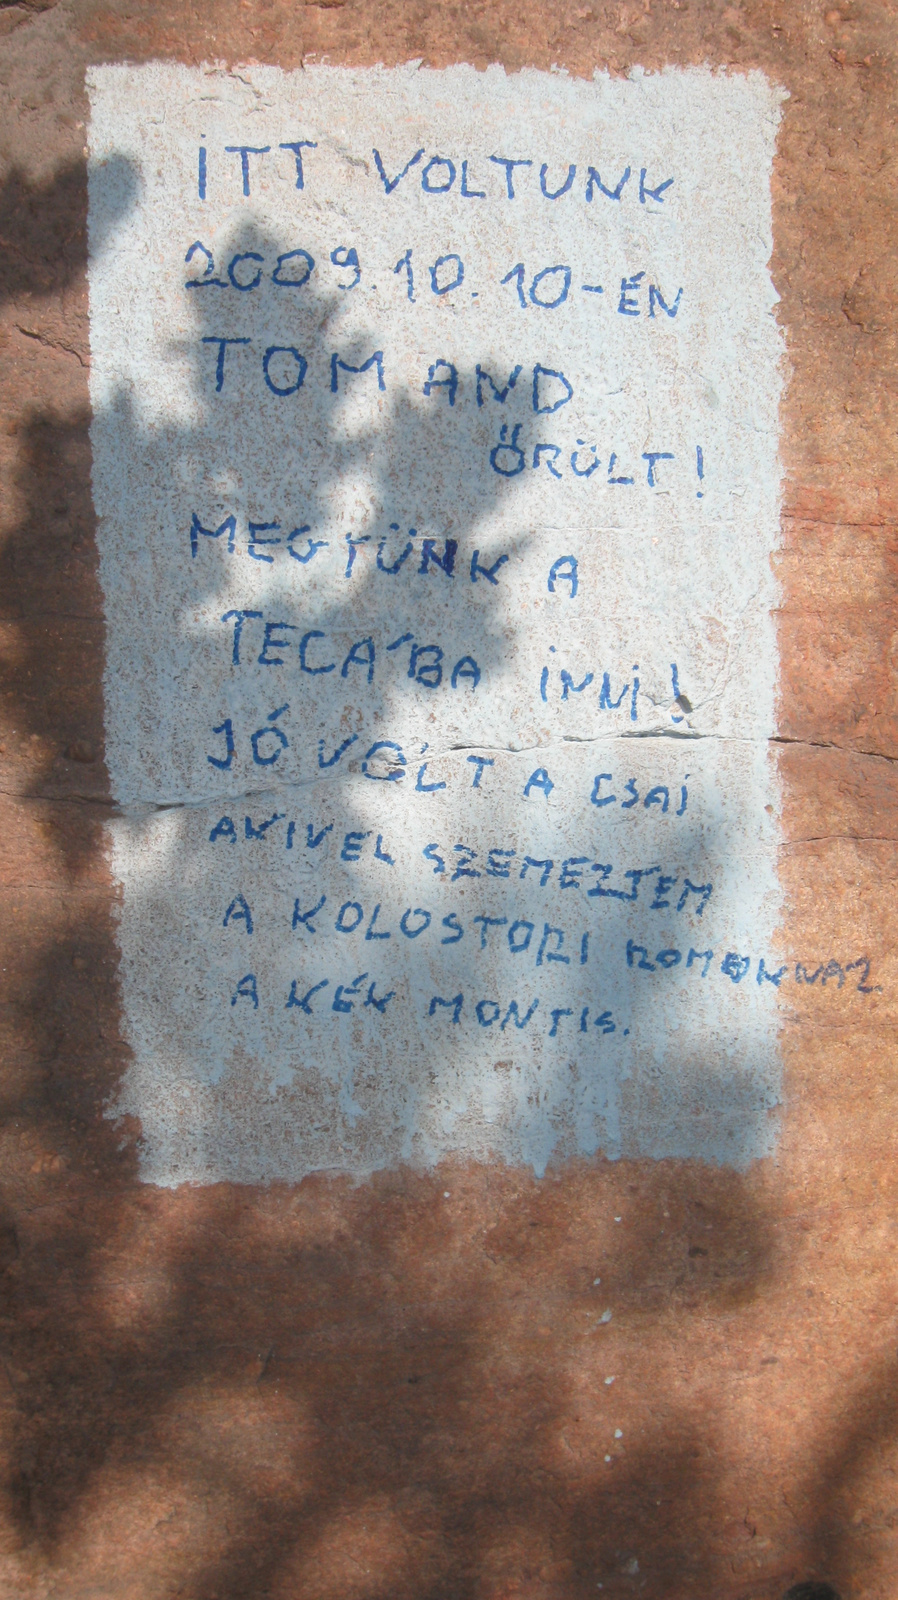 ITT VOLTUNK
2009.10.10-ÉN
TOM AND
ŐRÜLT!
MEGYÜNK A
TECÁ'BA INNI!
JÓ VOLT A CSAJ
AKIVEL SZEMEZTEM
A KOLOSTORI ROMOKNÁL
A KÉK MONTIS.